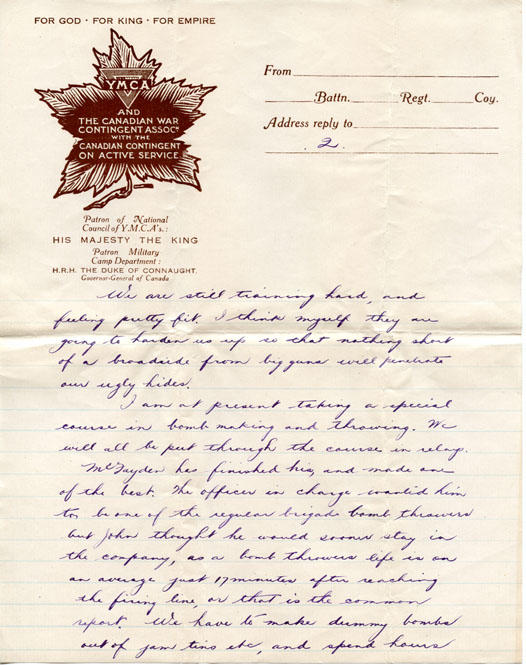 FOR GOD · FOR KING · FOR EMPIRE
YMCA
AND
THE CANADIAN WAR
CONTINGENT ASSOCN
WITH THE
CANADIAN CONTINGENT
ON ACTIVE SERVICE
Patron of National
Council of Y.M.C.A's.:
HIS MAJESTY THE KING
Patron Military
Camp Department:
H.R.H. THE DUKE OF CONNAUGHT.
Governor-General of Canada
From
Battn. Regt. Coy.
Address reply to
2.
We are still training hard, and
feeling pretty fit. I think myself they are
going to harden us up so that nothing short
of a broadside from big guns will penetrate
our ugly hides.
I am at present taking a special
course in bomb making and throwing. We
will all be put through the course in relays.
McFayden has finished his, and made one
of the best. The officer in charge wanted him
to be one of the regular brigade bomb throwers
but John thought he would sooner stay in
the company, as a bomb throwers life is on
an average just 17 minutes after reaching
the firing line, or that is the common
report. We have to make dummy bombs
out of jam tins etc, and spend hours